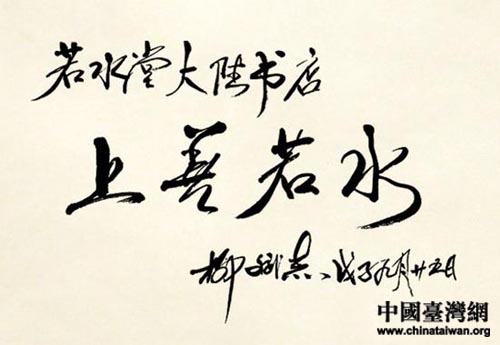 若水堂大陆书店
上善若水
柳斌杰、戊子九月廿五日
中國臺灣網
www.chinataiwan.org